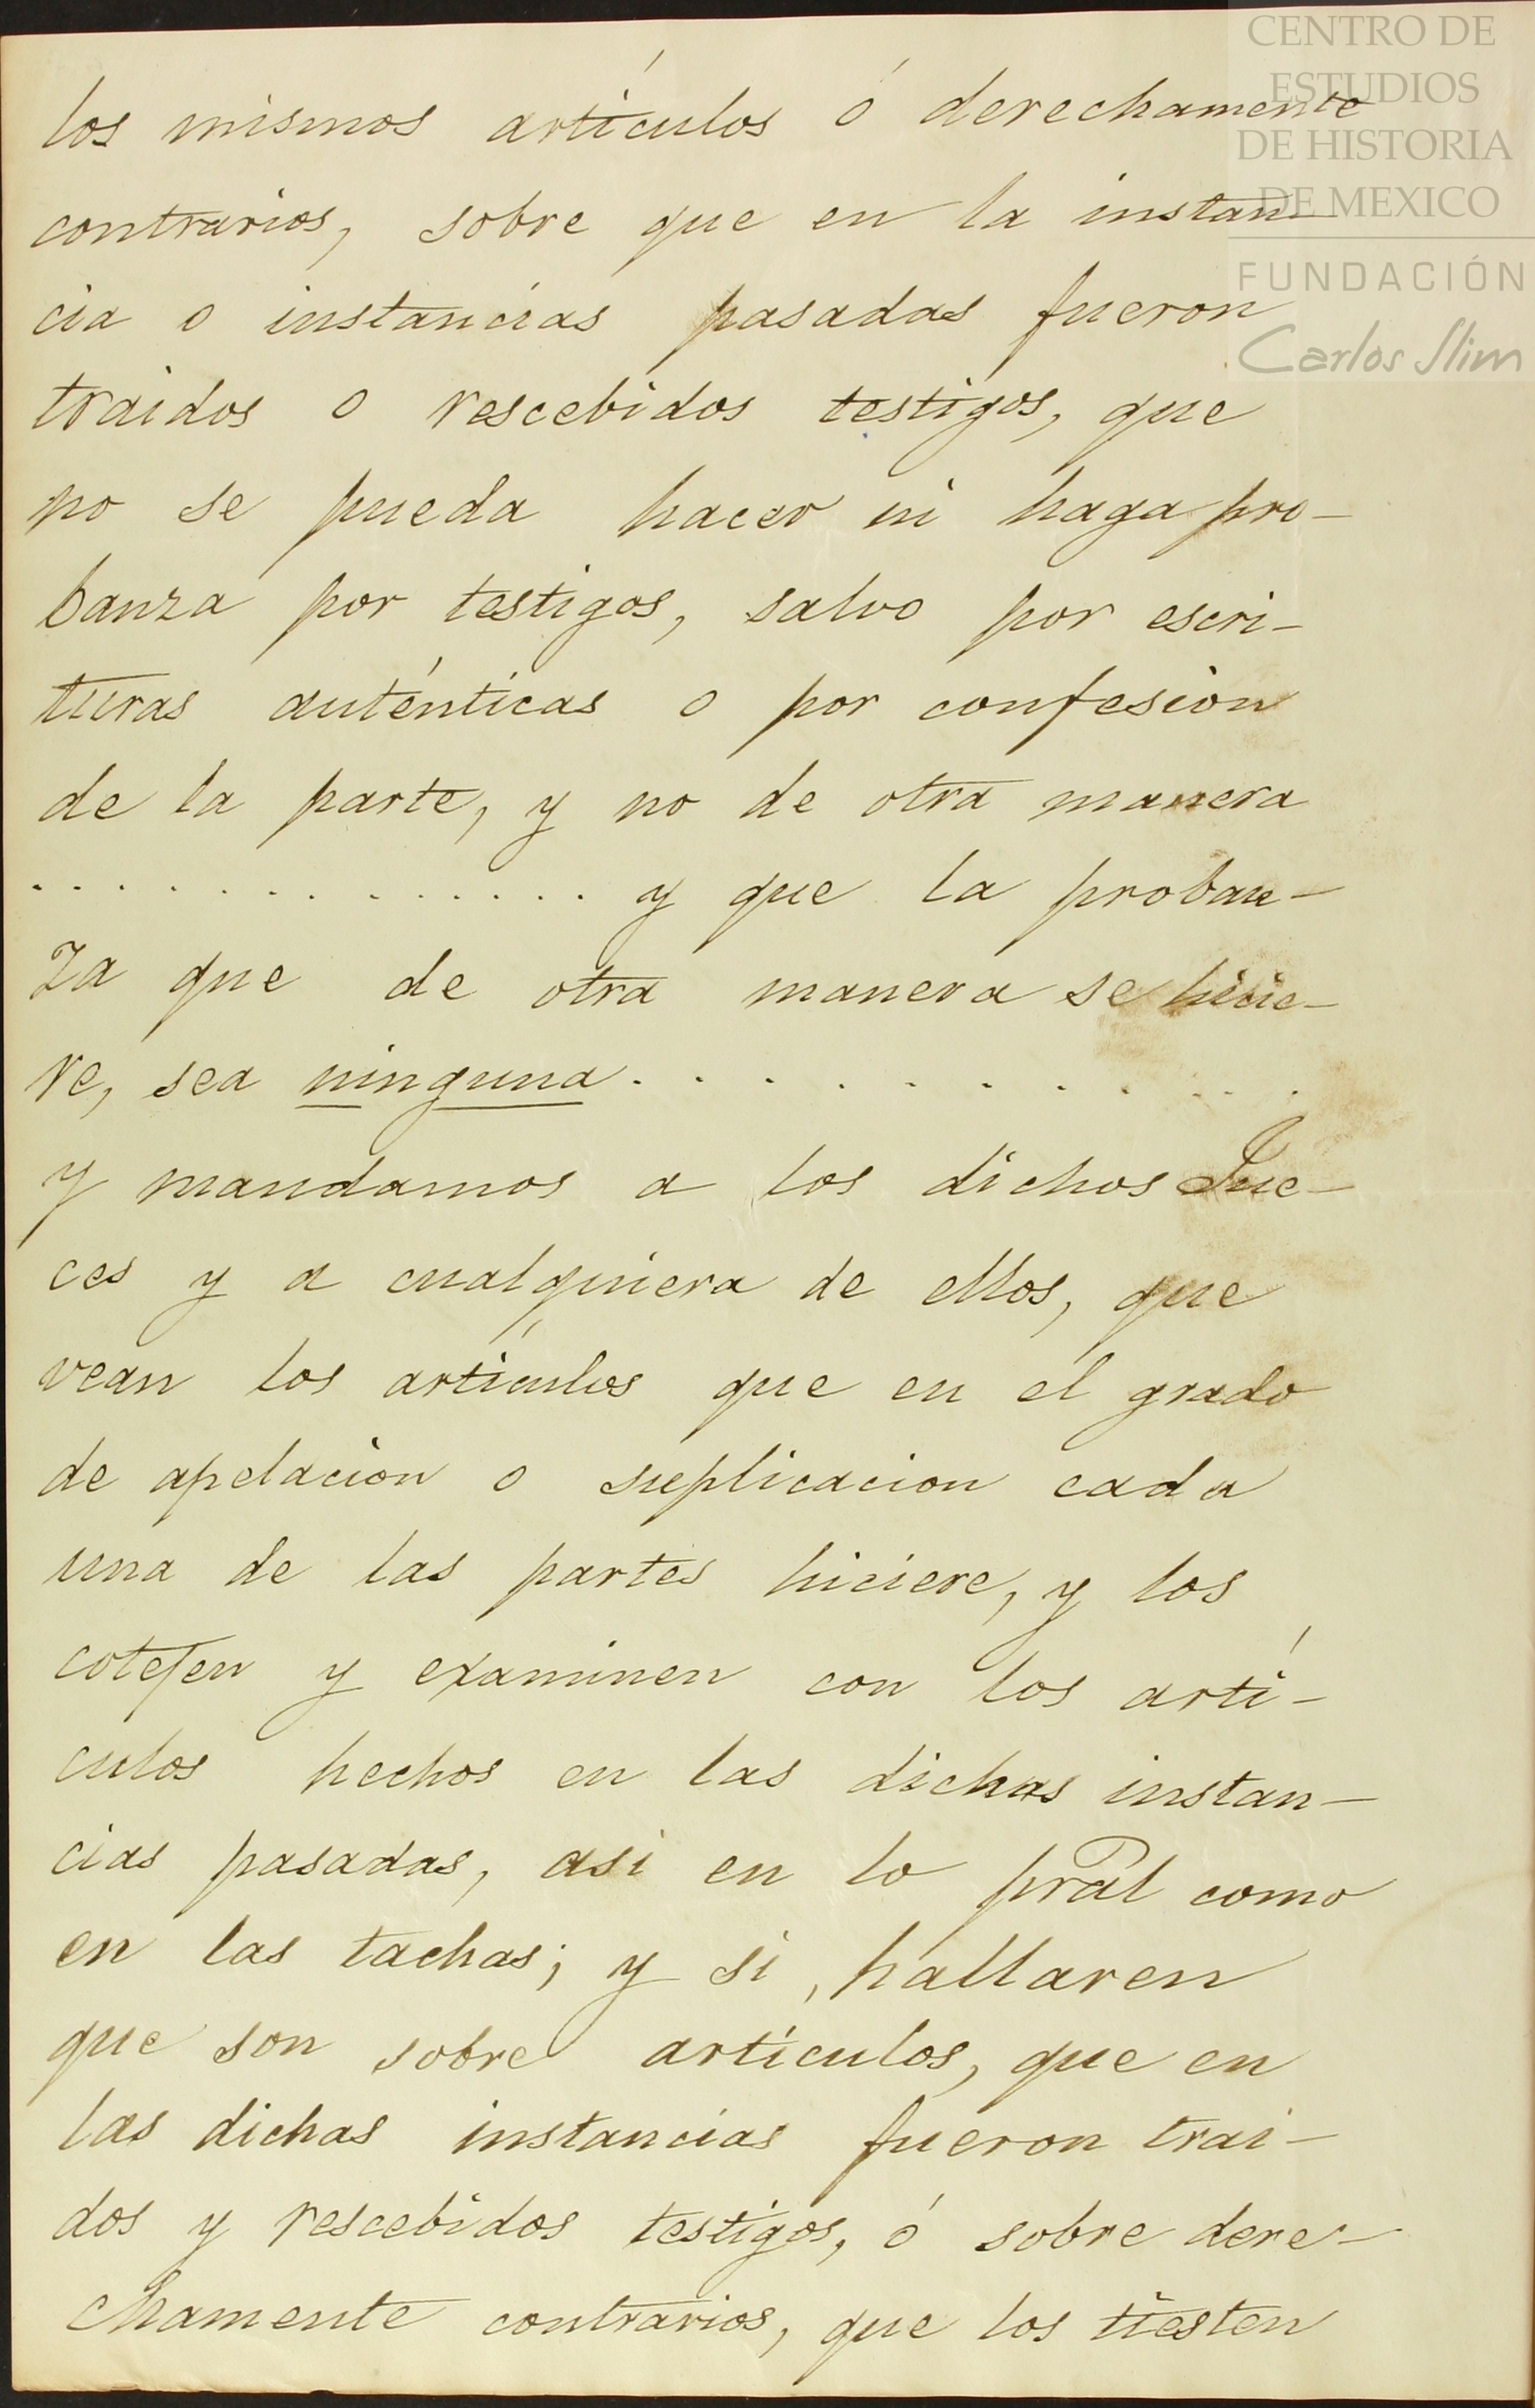 CENTRO DE
ESTUDIOS
DE HISTORIA
DE MEXICO
FUNDACIÓN
Carlos Slim
los mismos artículos ó derechamente
contrarios, sobre que en la instan-
cia o instancias pasadas fueron
traidos o rescebidos testigos, que
no se pueda hacer ni haga pro-
banza por testigos, salvo por escri-
turas auténticas o por confesion
de la parte, y no de otra manera
. . . . . . . . . . . . . . y que la proban-
za que de otra manera se hicie-
re, sea ninguna. . . . . . . . . . .
y mandamos a los dichos Jue-
ces y a cualquiera de ellos, que
vean los artículos que en el grado
de apelacion o suplicacion cada
una de las partes hiciere, y los
cotejen y examinen con los artí-
culos hechos en las dichas instan-
cias pasadas, asi en lo pral como
en las tachas; y si, hallaren
que son sobre articulos, que en
las dichas instancias fueron trai-
dos y rescebidos testigos, ó sobre dere-
chamente contrarios, que los tiesten